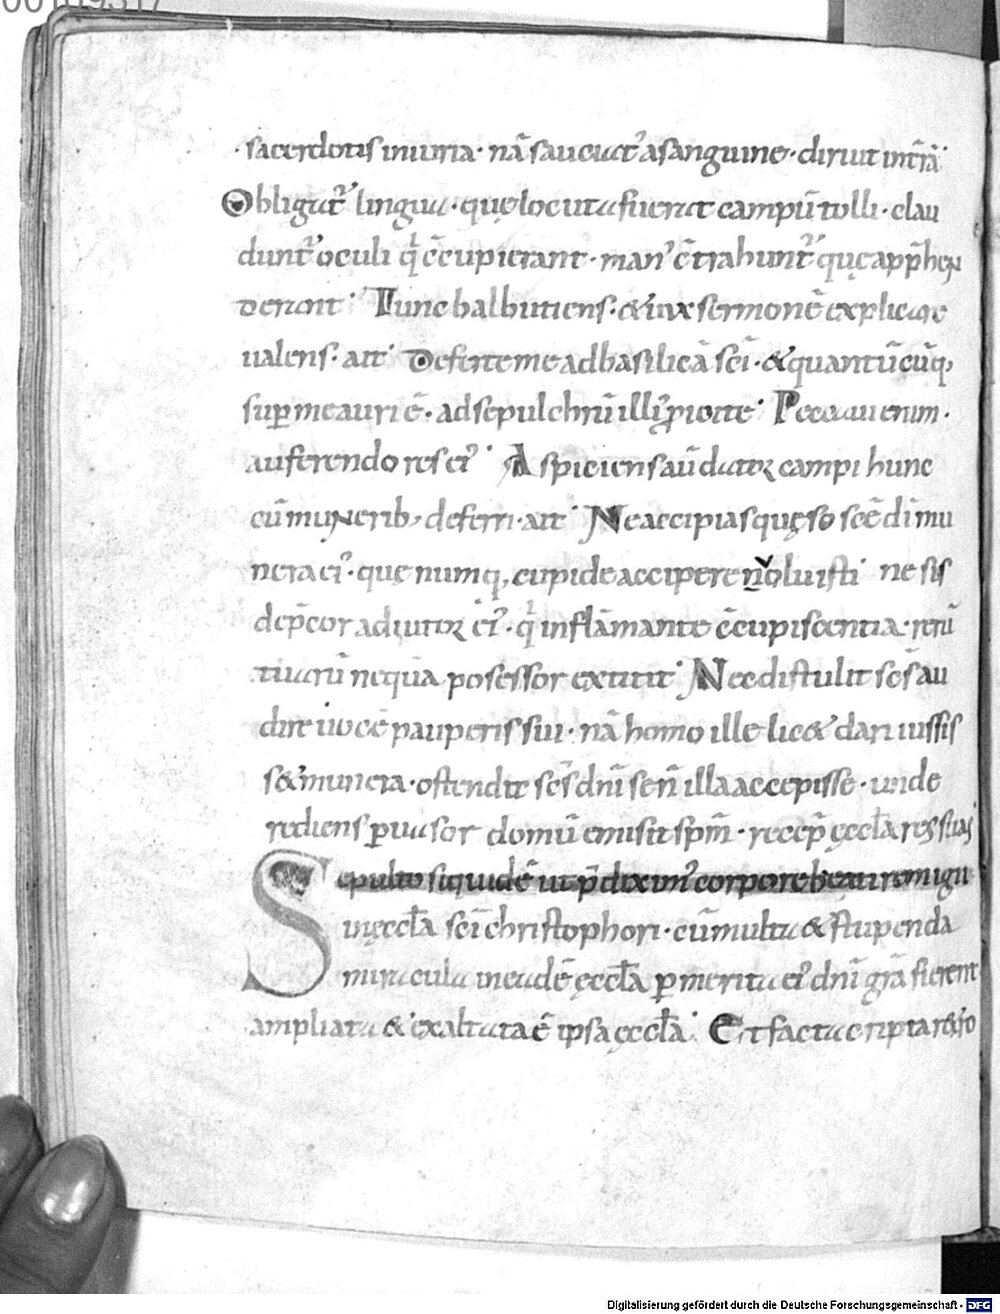 00109317
· sacerdotis iniuria · nā sauciat᷒ a sanguine · diriuit in t̄rā ·
Obligat᷒ lingua · quę locuta fuerat campū tolli · clau
dunt᷒ oculi q̇ c̄cupierant · man᷒ c̄trahunt᷒ quę app̄hen
derant · Tunc balbutiens · & uix sermonē explicare
ualens · ait · Deferte me ad basilicā sc̄i · & quantūcūq;
sup me auri ē · ad sepulchrū illi᷒ proicite · Peccaui enim ·
auferendo res ei᷒ · Aspiciens aū dator campi hunc
cū munerib; deferri · ait · Ne accipias quęso sc̄e di mu
nera ei᷒ · quę numq, cupide accipere noluisti ne sis
dep̄cor adiutor ei᷒ · q̇ inflāmante c̄cupiscentia · rerū
tuarū nequā posessor extitit · Nec distulit sc̄s au
dire uocē pauperis sui · nā homo ille lic& dari iussis
s& munera · ostendit sc̄s dnī se n̄ illa accepisse · unde
rediens puasor domū emisit spm̄ · recep̄ ęccła res suas
Sepulto siquidē ut p̄dixim᷒ corpore beati remigii
in ęccła sc̄i christophori · cū multa & stupenda
miracula in eadē ęccła p merita ei᷒ dnī gr̄a fierent
ampliata & exaltata ē ipsa ęccła · Et facta cripta r&ro
Digitalisierung gefördert durch die Deutsche Forschungsgemeinschaft - DFG